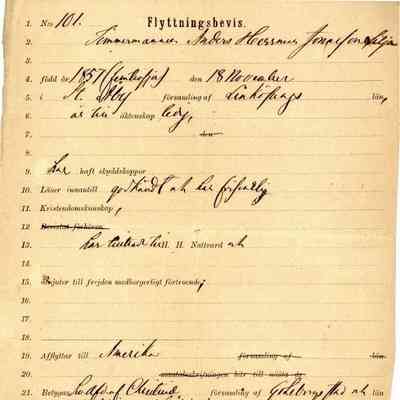 1. N:o 101. Flyttningsbevis.
2. Timmermannen Anders Herrman Jonasson
3.
4. född år 1857 (femtiosju) den 18 November
5. i St. Åby församling af Linköpings län,
6. är till äktenskap ledig,
7. den
8.
9. har haft skyddskoppor
10. Läser innantill godkändt och har
11. Kristendomskunskap,
12. Bevistat förhören
13. har till H. H. Nattvard och
14.
15. åtnjuter till frejden medborgerligt förtroende;
16.
17.
18.
19. Afflyttar till Amerika församling af län.
20. mantalsskrifningen här till nästa år
21. Betygas församling af Göteborgs stad och